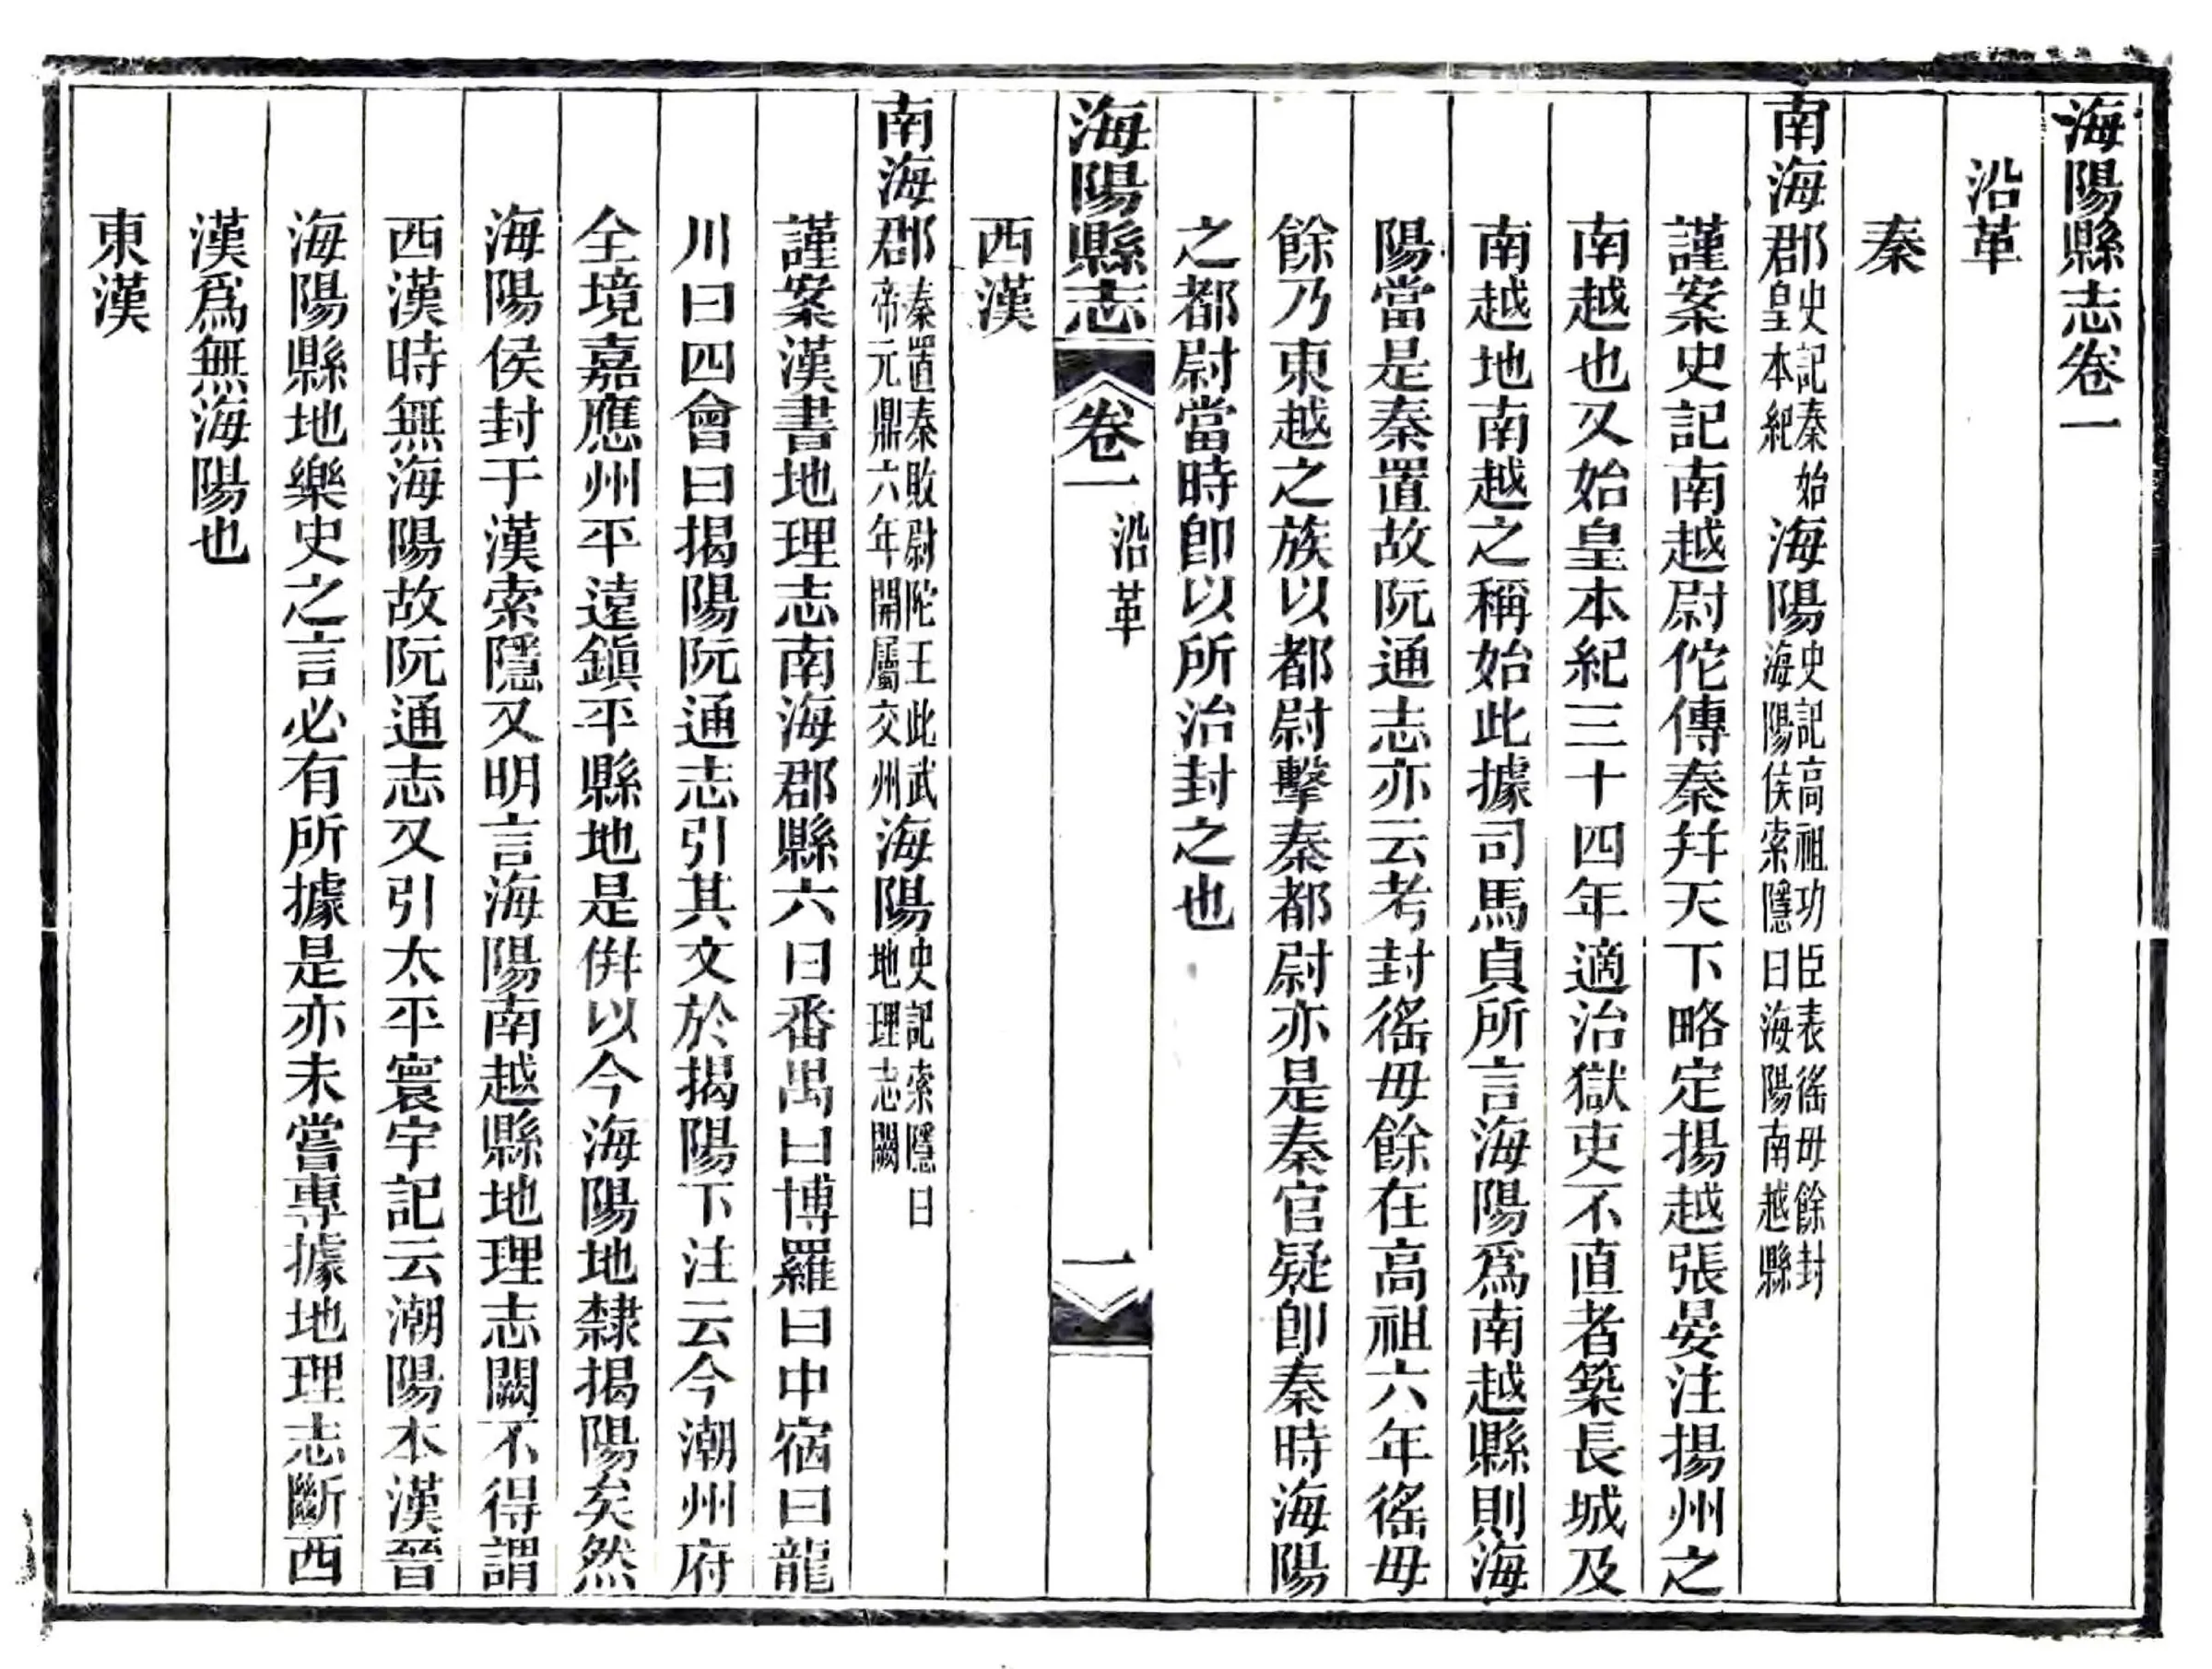 海陽縣志卷一
沿革
秦
南海郡史記秦始皇本紀海陽史記高祖功臣表徭毋餘封海陽侯索隱曰海陽南越縣
謹案史記南越尉佗傳秦幷天下略定揚越張晏注揚州之
南越也又始皇本紀三十四年適治獄吏不直者築長城及
南越地南越之稱始此據司馬貞所言海陽爲南越縣則海
陽當是秦置故阮通志亦云考封徭毋餘在高祖六年徭毋
餘乃東越之族以都尉擊秦都尉亦是秦官疑卽秦時海陽
之都尉當時卽以所治封之也
海陽縣志 卷一 沿革 一
西漢
南海郡秦置秦敗尉陀王此武帝元鼎六年開屬交州海陽史記索隱曰地理志闕
謹案漢書地理志南海郡縣六曰番禺曰博羅曰中宿曰龍
川曰四會曰揭陽阮通志引其文於揭陽下注云今潮州府
全境嘉應州平遠鎭平縣地是倂以今海陽地隸揭陽矣然
海陽侯封于漢索隱又明言海陽南越縣地理志闕不得謂
西漢時無海陽故阮通志又引太平寰宇記云潮陽本漢晉
海陽縣地樂史之言必有所據是亦未嘗專據地理志斷西
漢爲無海陽也
東漢